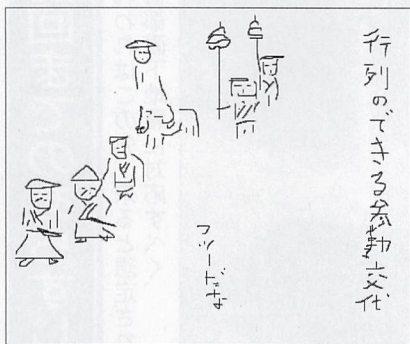 行列のできる参勤交代
フツーだな